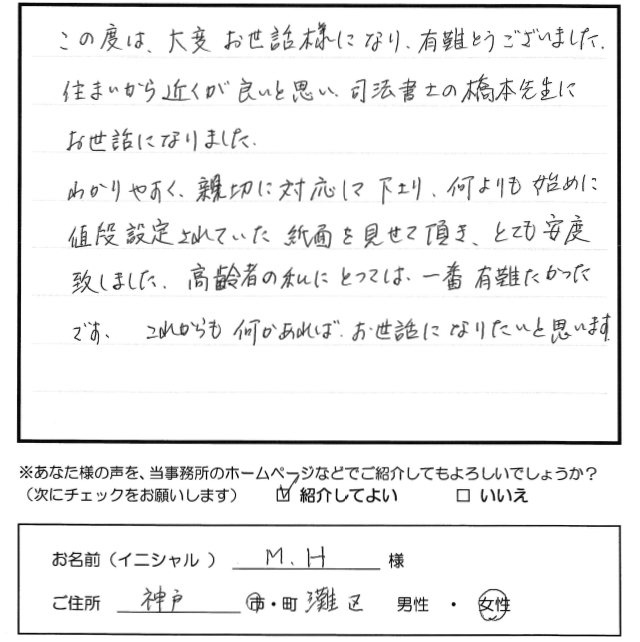 この度は、大変お世話様になり、有難とうございました.
住まいから近くが良いと思い、司法書士の橋本先生に
お世話になりました.
わかりやすく、親切に対応して下さり、何よりも始めに
値段設定されていた紙面を見せて頂き、とても安度
致しました. 高齢者の私にとっては、一番有難たかった
です、これからも何かあれば、お世話になりたいと思います
※あなた様の声を、当事務所のホームページなどでご紹介してもよろしいでしょうか?
(次にチェックをお願いします) ☑ 紹介してよい □ いいえ
お名前(イニシャル) M.H 様
ご住所 神戸 市・町 灘区 男性 ・ 女性